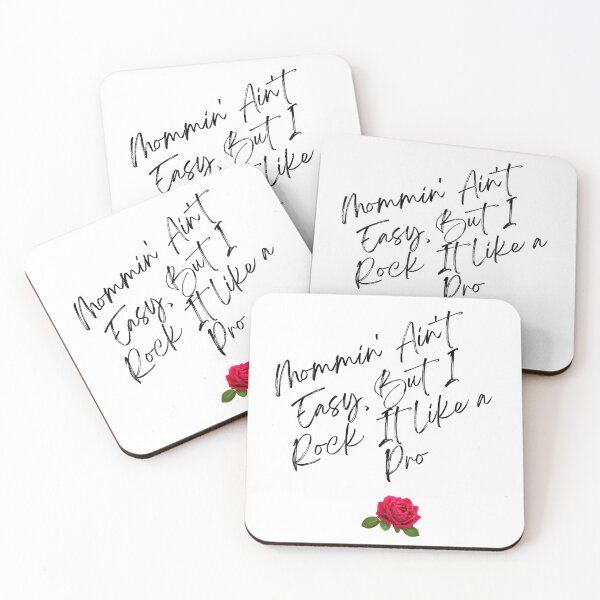 Mommin' Ain't
Easy, But I
Like
Mommin' Ain't
Easy, But I
Rock It Like a
Pro
Mommin' Ain't
Easy, But I
Rock It Like a
Pro
Mommin' Ain't
Easy, But I
Rock It Like a
Pro